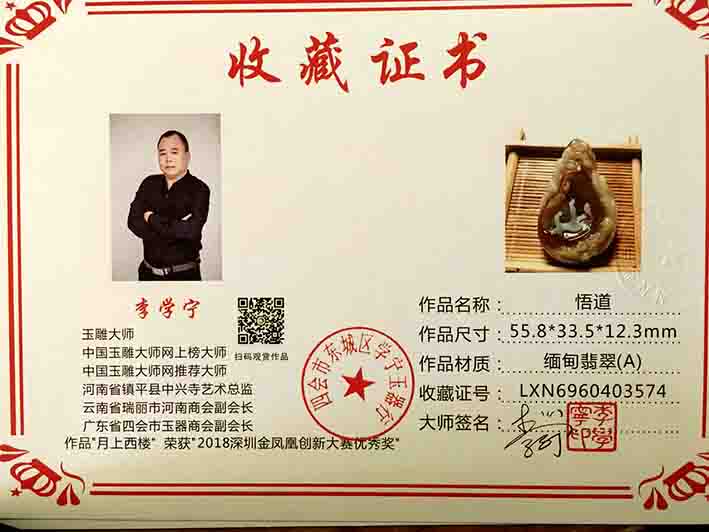 收藏证书
李学宁
玉雕大师
中国玉雕大师网上榜大师
中国玉雕大师网推荐大师
河南省镇平县中兴寺艺术总监
云南省瑞丽市河南商会副会长
广东省四会市玉器商会副会长
作品"月上西楼" 荣获"2018深圳金凤凰创新大赛优秀奖"
扫码观赏作品
四会市东城区学宁玉器行
作品名称: 悟道
作品尺寸: 55.8*33.5*12.3mm
作品材质: 缅甸翡翠(A)
收藏证号: LXN6960403574
大师签名:
李學寧印